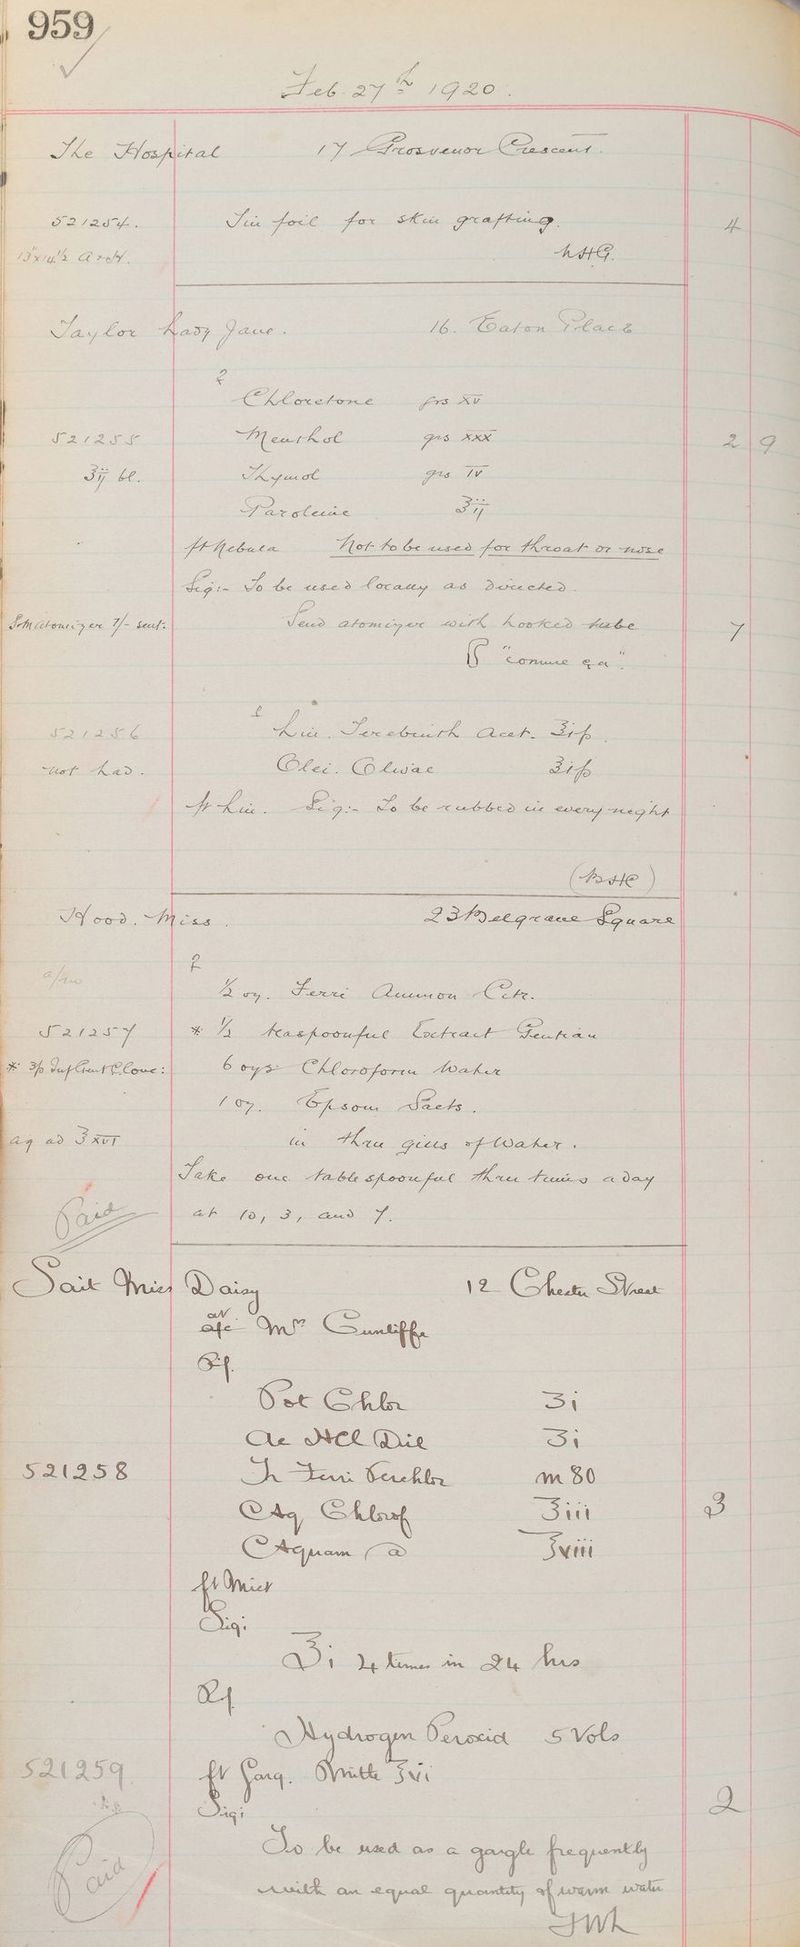 959
Feb. 27th 1920.
The Hospital 17 Grosvenor Crescent.
521254. Tin foil for skin grafting. 4
13"x14½
Taylor Lady Jane. 16. Eaton Place
Chloretone grs XV
521255 Menthol grs XXX 2 9
℥ij bl. Thymol grs IV
Paroleine ℥ij
ft Nebula Not to be used for throat or nose
Sig:- To be used locally as directed.
Atomizer 7/- sent. Send atomizer with hooked tube 7
"comme ça".
521256 Lin. Terebinth Acet. ℥iß.
not had. Olei. Olivae ℥iß
ft Lin. Sig:- To be rubbed in every night
Hood. Miss. 23 Belgrave Square
½ oz. Ferri Ammon Citr.
521257 * ½ teaspoonful Extract Gentian
* 6 ozs Chloroform Water
1 oz. Epsom Salts.
aq ad ℥XVI in three gills of Water.
Take one tablespoonful three times a day
Paid at 10, 3, and 7.
Sait Miss Daisy 12 Chester Street
Mrs Cunliffe
Pot Chlor ʒi
Ac HCl Dil ʒi
521258 Tr Ferri Perchlor m 80
Aq Chlorof ℥iii 3
Aquam a ℥viii
ft Mist
Sig:
℥i 4 times in 24 hrs
Rx
Hydrogen Peroxid 5 Vols
521259 ft Garg. Mitte ℥vi
Sig: 2
To be used as a gargle frequently
Paid with an equal quantity of warm water